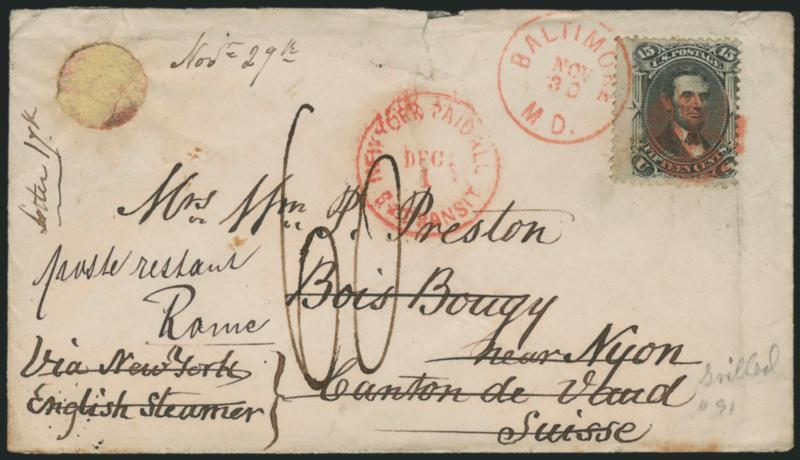 Novr 29th
BALTIMORE
NOV
30
MD.
15 U.S. POSTAGE 15
FIFTEEN CENTS
U S
NEW YORK PAID ALL
DEC
1
BR TRANSIT
letter 17th
60
Mrs. Wm. P. Preston
poste restant
Rome
Bois Bougy
near Nyon
Canton de Vaud
Suisse
Via New York
English Steamer
Grilled
#91